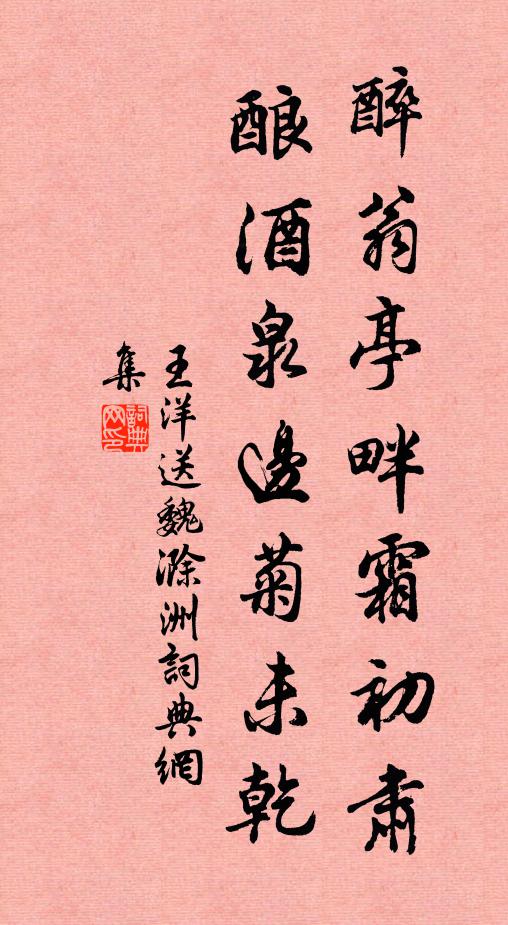 醉翁亭畔霜初肃
酿酒泉邊菊未乾
王洋送魏滁洲詞典網
集
詞典网印